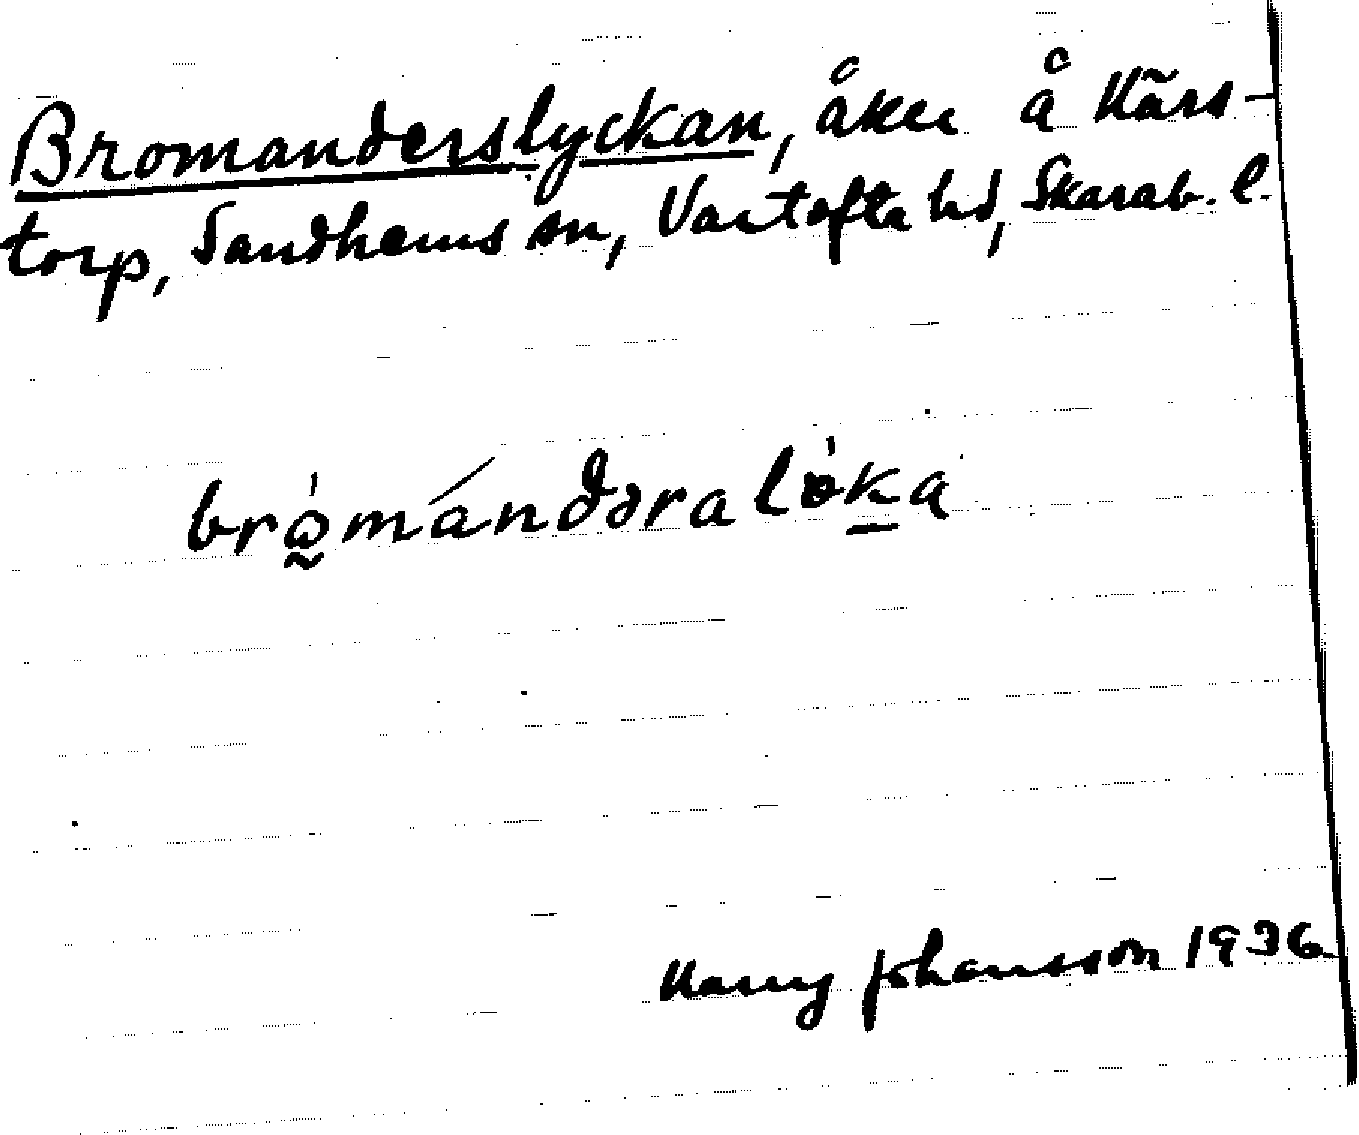 Bromanderslyckan, åker å Kärs-
torp, Sandhems sn, Vartofta hd, Skarab. l.
brò̰mándəralò̵ḵa
Harry Johansson 1936